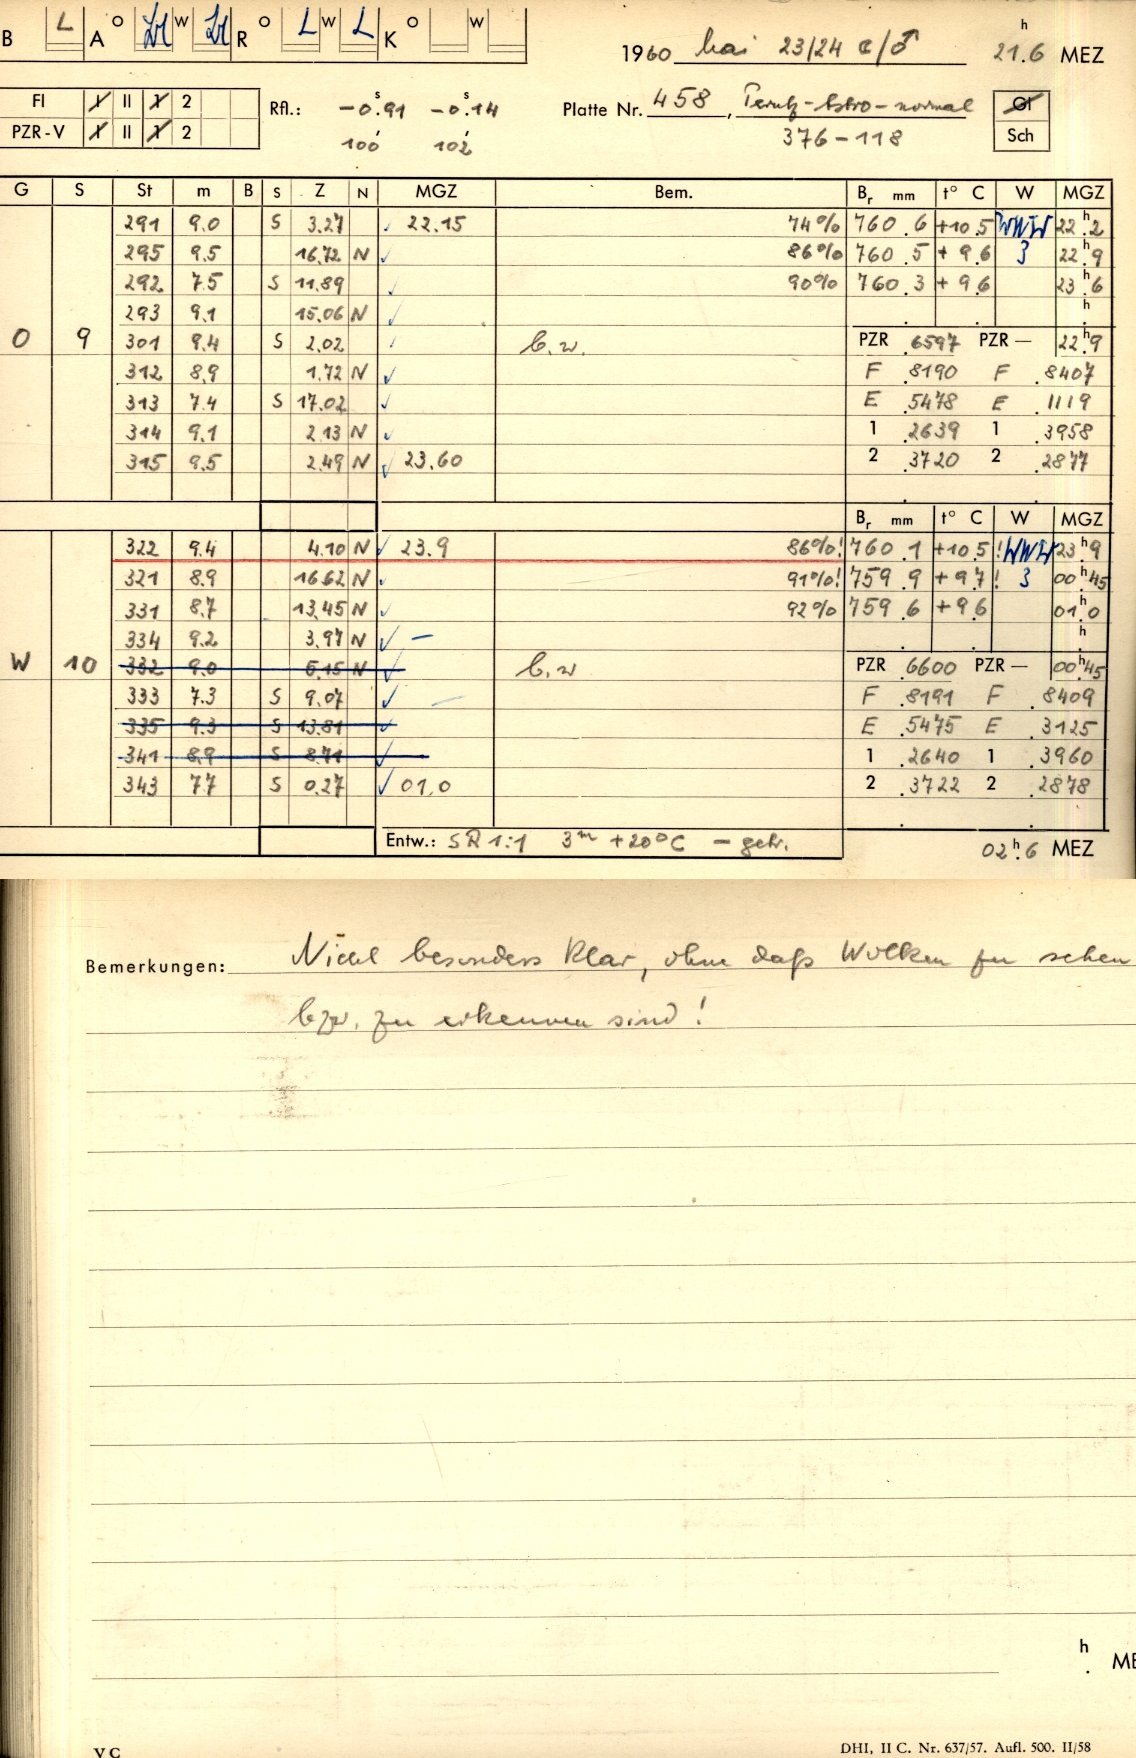 B L A O W R O L W L K O W
1960 Mai 23/24 ☾/♂ 21.6 h MEZ
Fl 1 II 1 2
PZR-V 1 II 1 2
Rfl.: -0.91 s -0.14 s
100 102
Platte Nr. 458, Perutz-Astro-normal
376-118
Gl
Sch
G S St m B S Z N MGZ Bem. Br mm t° C W MGZ
291 9.0 S 3.27 ✓ 22.15 74% 760.6 +10.5 WNW 22 h.2
295 9.5 16.72 N ✓ 86% 760.5 +9.6 3 22 h.9
292 7.5 S 11.89 ✓ 90% 760.3 +9.6 23 h.6
293 9.1 15.06 N ✓ h
O 9 301 9.4 S 2.02 ✓ b.w. PZR .6597 PZR — 22 h.9
312 8.9 1.72 N ✓ F .8190 F .8407
313 7.4 S 17.02 ✓ E .5478 E .1119
314 9.1 2.13 N ✓ 1 .2639 1 .3958
315 9.5 2.49 N ✓ 23.60 2 .3720 2 .2877
Br mm t° C W MGZ
322 9.4 4.10 N ✓ 23.9 86%! 760.1 +10.5! WNW 23 h.9
321 8.9 16.62 N ✓ 91%! 759.9 +9.7! 3 00 h.45
331 8.7 13.45 N ✓ 92% 759.6 +9.6 01 h.0
334 9.2 3.97 N ✓ — h
W 10 332 9.0 6.15 N ✓ b.w PZR .6600 PZR — 00 h.45
333 7.3 S 9.07 ✓ — F .8191 F .8409
335 9.3 S 13.81 ✓ E .5475 E .3125
341 8.9 S 8.71 ✓ 1 .2640 1 .3960
343 7.7 S 0.27 ✓ 01.0 2 .3722 2 .2878
Entw.: SR 1:1 3 m +20°C — gek. 02 h.6 MEZ
Bemerkungen: Nicht besonders klar, ohne daß Wolken zu sehen
bzw. zu erkennen sind!
h
. ME
V C DHI, II C. Nr. 637/57. Aufl. 500. II/58